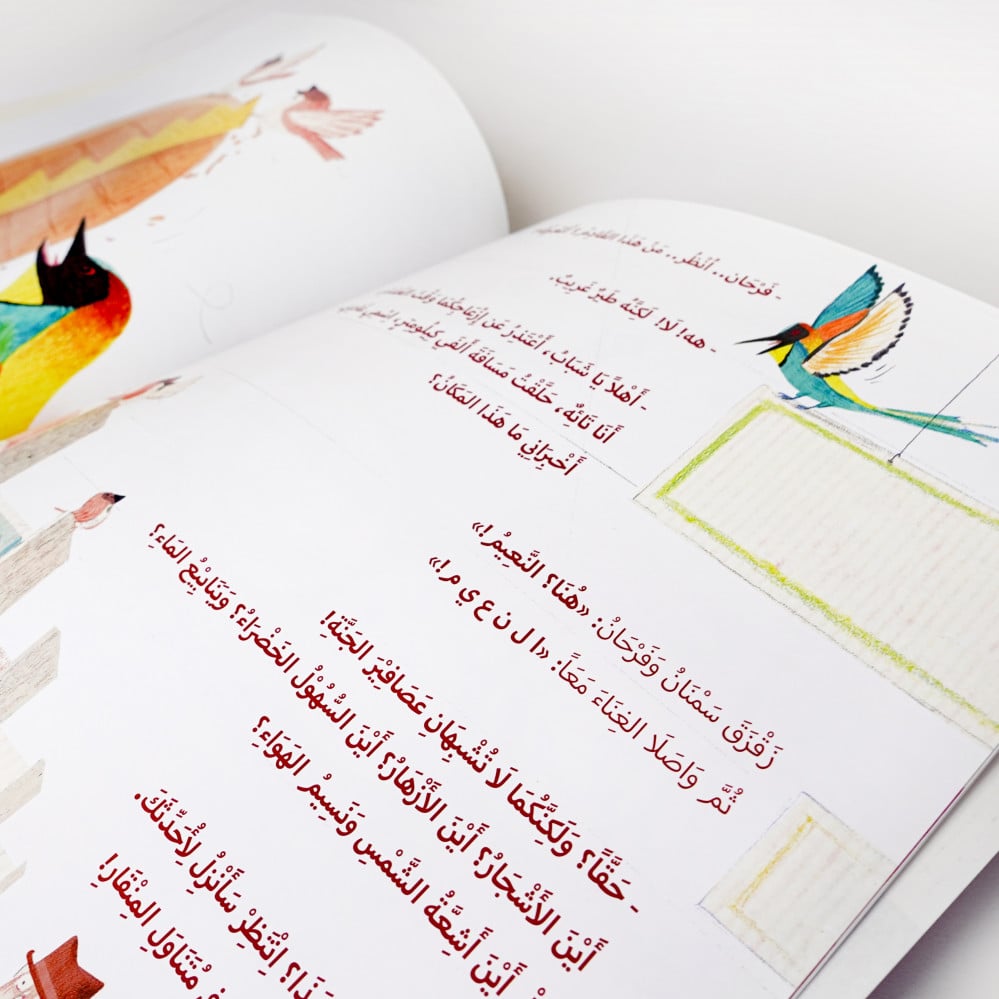 - فَرْحَان.. اُنْظُر.. مَنْ هَذَا القَادِمُ؟
- هه! لَا! لَكِنَّهُ طَيْرٌ غَرِيبٌ.
- أَهْلاً يَا شَبَابُ، أَعْتَذِرُ عَن إِزْعَاجِكُمَا وَقْتَ
أَنَا تَائِهٌ، حَلَّقْتُ مَسَافَةَ أَلْفَي كِيلُومِتر،
أَخْبِرَانِي مَا هَذَا المَكَانُ؟
زَقْزَقَ سَمْنَانُ وَفَرْحَانُ: «هُنَا؟ النَّعيمُ!»
ثُمَّ وَاصَلَا الغِنَاءَ مَعَاً: «ا ل ن ع ي م!»
- حَقَّاً؟ وَلَكِنَّكُمَا لَا تُشْبِهَانِ عَصَافِيْرَ الجَنَّةِ!
أَيْنَ الأَشْجَارُ؟ أَيْنَ الأَزْهَارُ؟ أَيْنَ السُّهُوْلُ الخَضْرَاءُ؟ وَيَنَابِيْعُ المَاءِ؟
أَيْنَ أَشِعَّةُ الشَّمْسِ وَنَسِيمُ الهَوَاءِ؟
اِنْتَظِرْ سَأَنْزِلُ لِأُحَدِّثَكَ.
مُتَنَاوَلِ المِنْقَارِ!